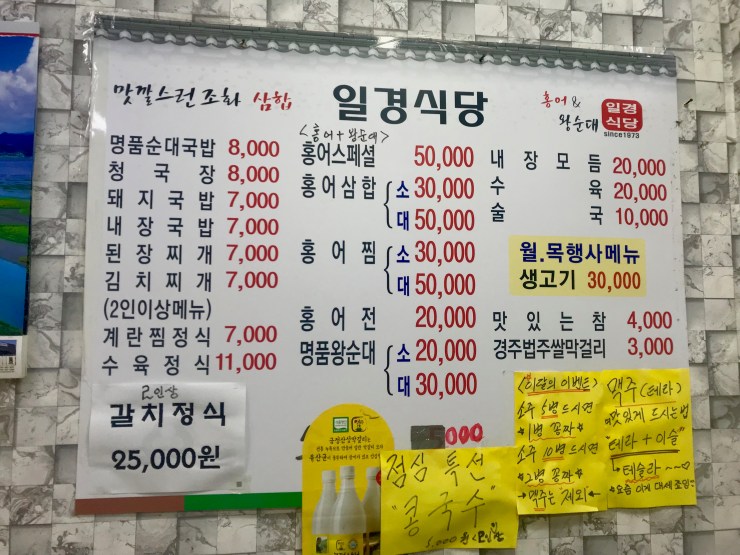 맛깔스런 조화 삼합
일경식당
홍어 &
왕순대
일경
식당
since1973
명품순대국밥 8,000
청국장 8,000
돼지국밥 7,000
내장국밥 7,000
된장찌개 7,000
김치찌개 7,000
(2인이상메뉴)
계란찜정식 7,000
수육정식 11,000
2인상
갈치정식
25,000원
<홍어+왕순대>
홍어스페셜 50,000
홍어삼합 소 30,000
대 50,000
홍어찜 소 30,000
대 50,000
홍어전 20,000
명품왕순대 소 20,000
대 30,000
내장모듬 20,000
수육 20,000
술국 10,000
월.목행사메뉴
생고기 30,000
맛있는참 4,000
경주법주쌀막걸리 3,000
점심 특선
"콩국수"
<이달의 이벤트>
소주 5병 드시면
*1병 공짜*
소주 10병 드시면
*2병 공짜*
맥주는 제외
맥주(테라)
맛있게 드시는법
"테라+이슬"
테슬라
요즘 이게 대세 고임